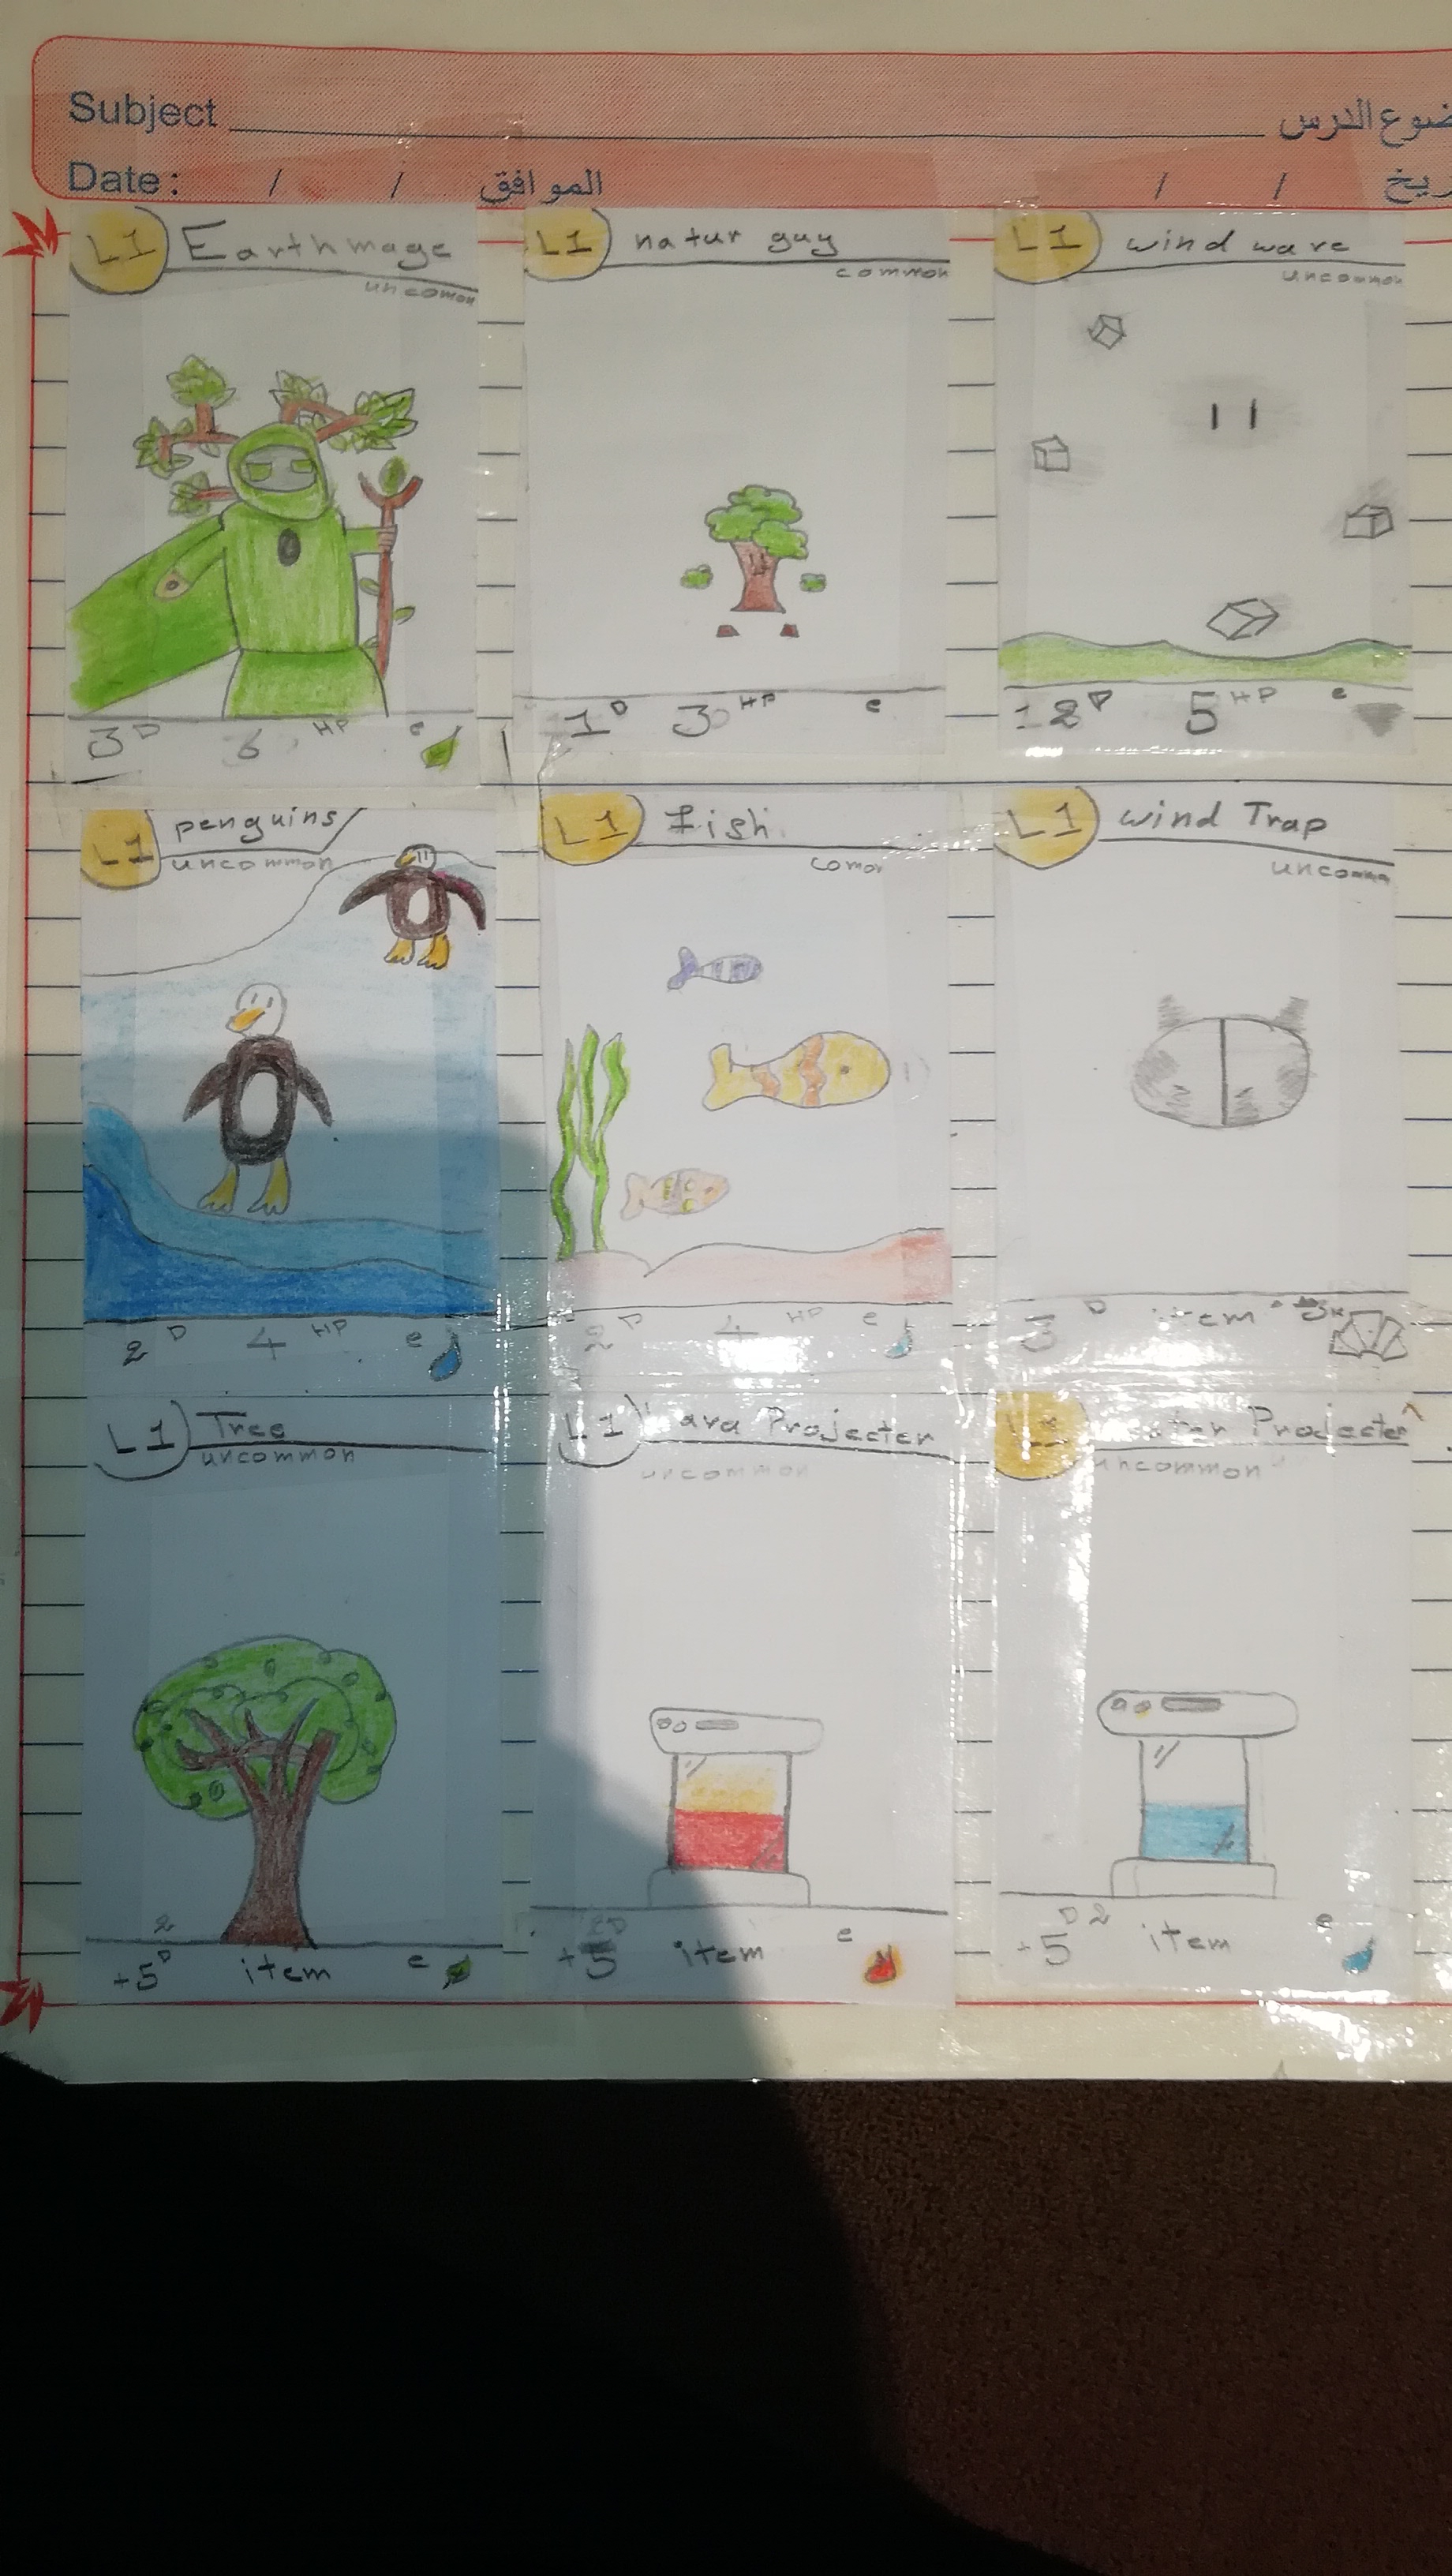 Subject موضوع الدرس
Date: / / الموافق / /
L1 Earth mage
uncomon
3 D HP e
L1 natur guy
common
1 D 3 HP e
L1 wind wave
uncommon
2 D 5 HP e
L1 penguins
uncommon
2 D 4 HP e
L1 Fish
comon
2 D 4 HP e
L1 wind Trap
uncomm
3 D item
L1 Tree
uncommon
2
+5 D item e
L1 Lava Projecter
uncommon
+5 D item e
Projecter
uncommon
+5 D 2 item e